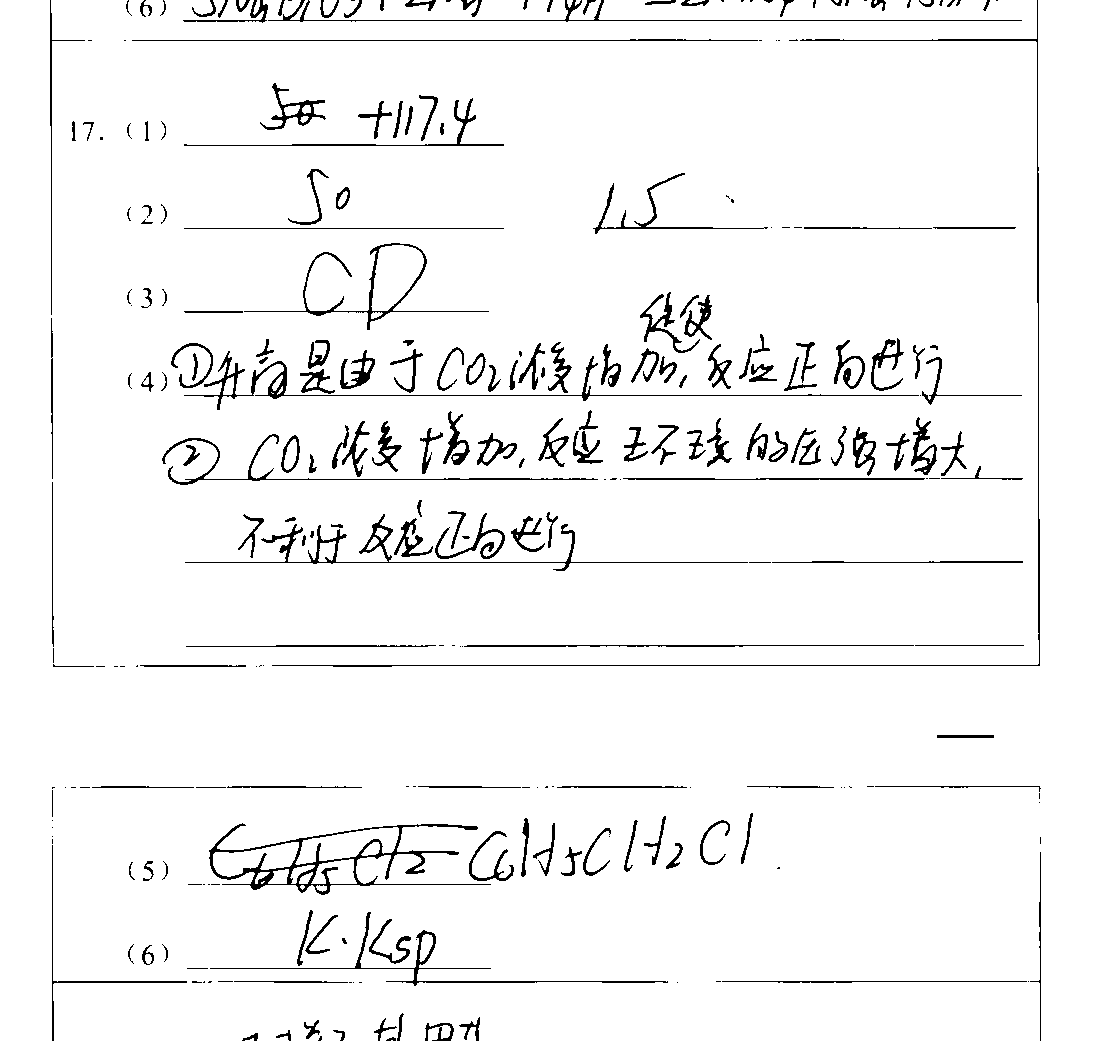 (6)
17. (1) +117.4
(2) 50 1.5
(3) CD
使
(4) ①升高是由于CO₂浓度增加,反应正向进行
② CO₂浓度增加,反应 的压强增大,
不利于反应正向进行
(5) C₆H₅CH₂Cl
(6) K·Ksp